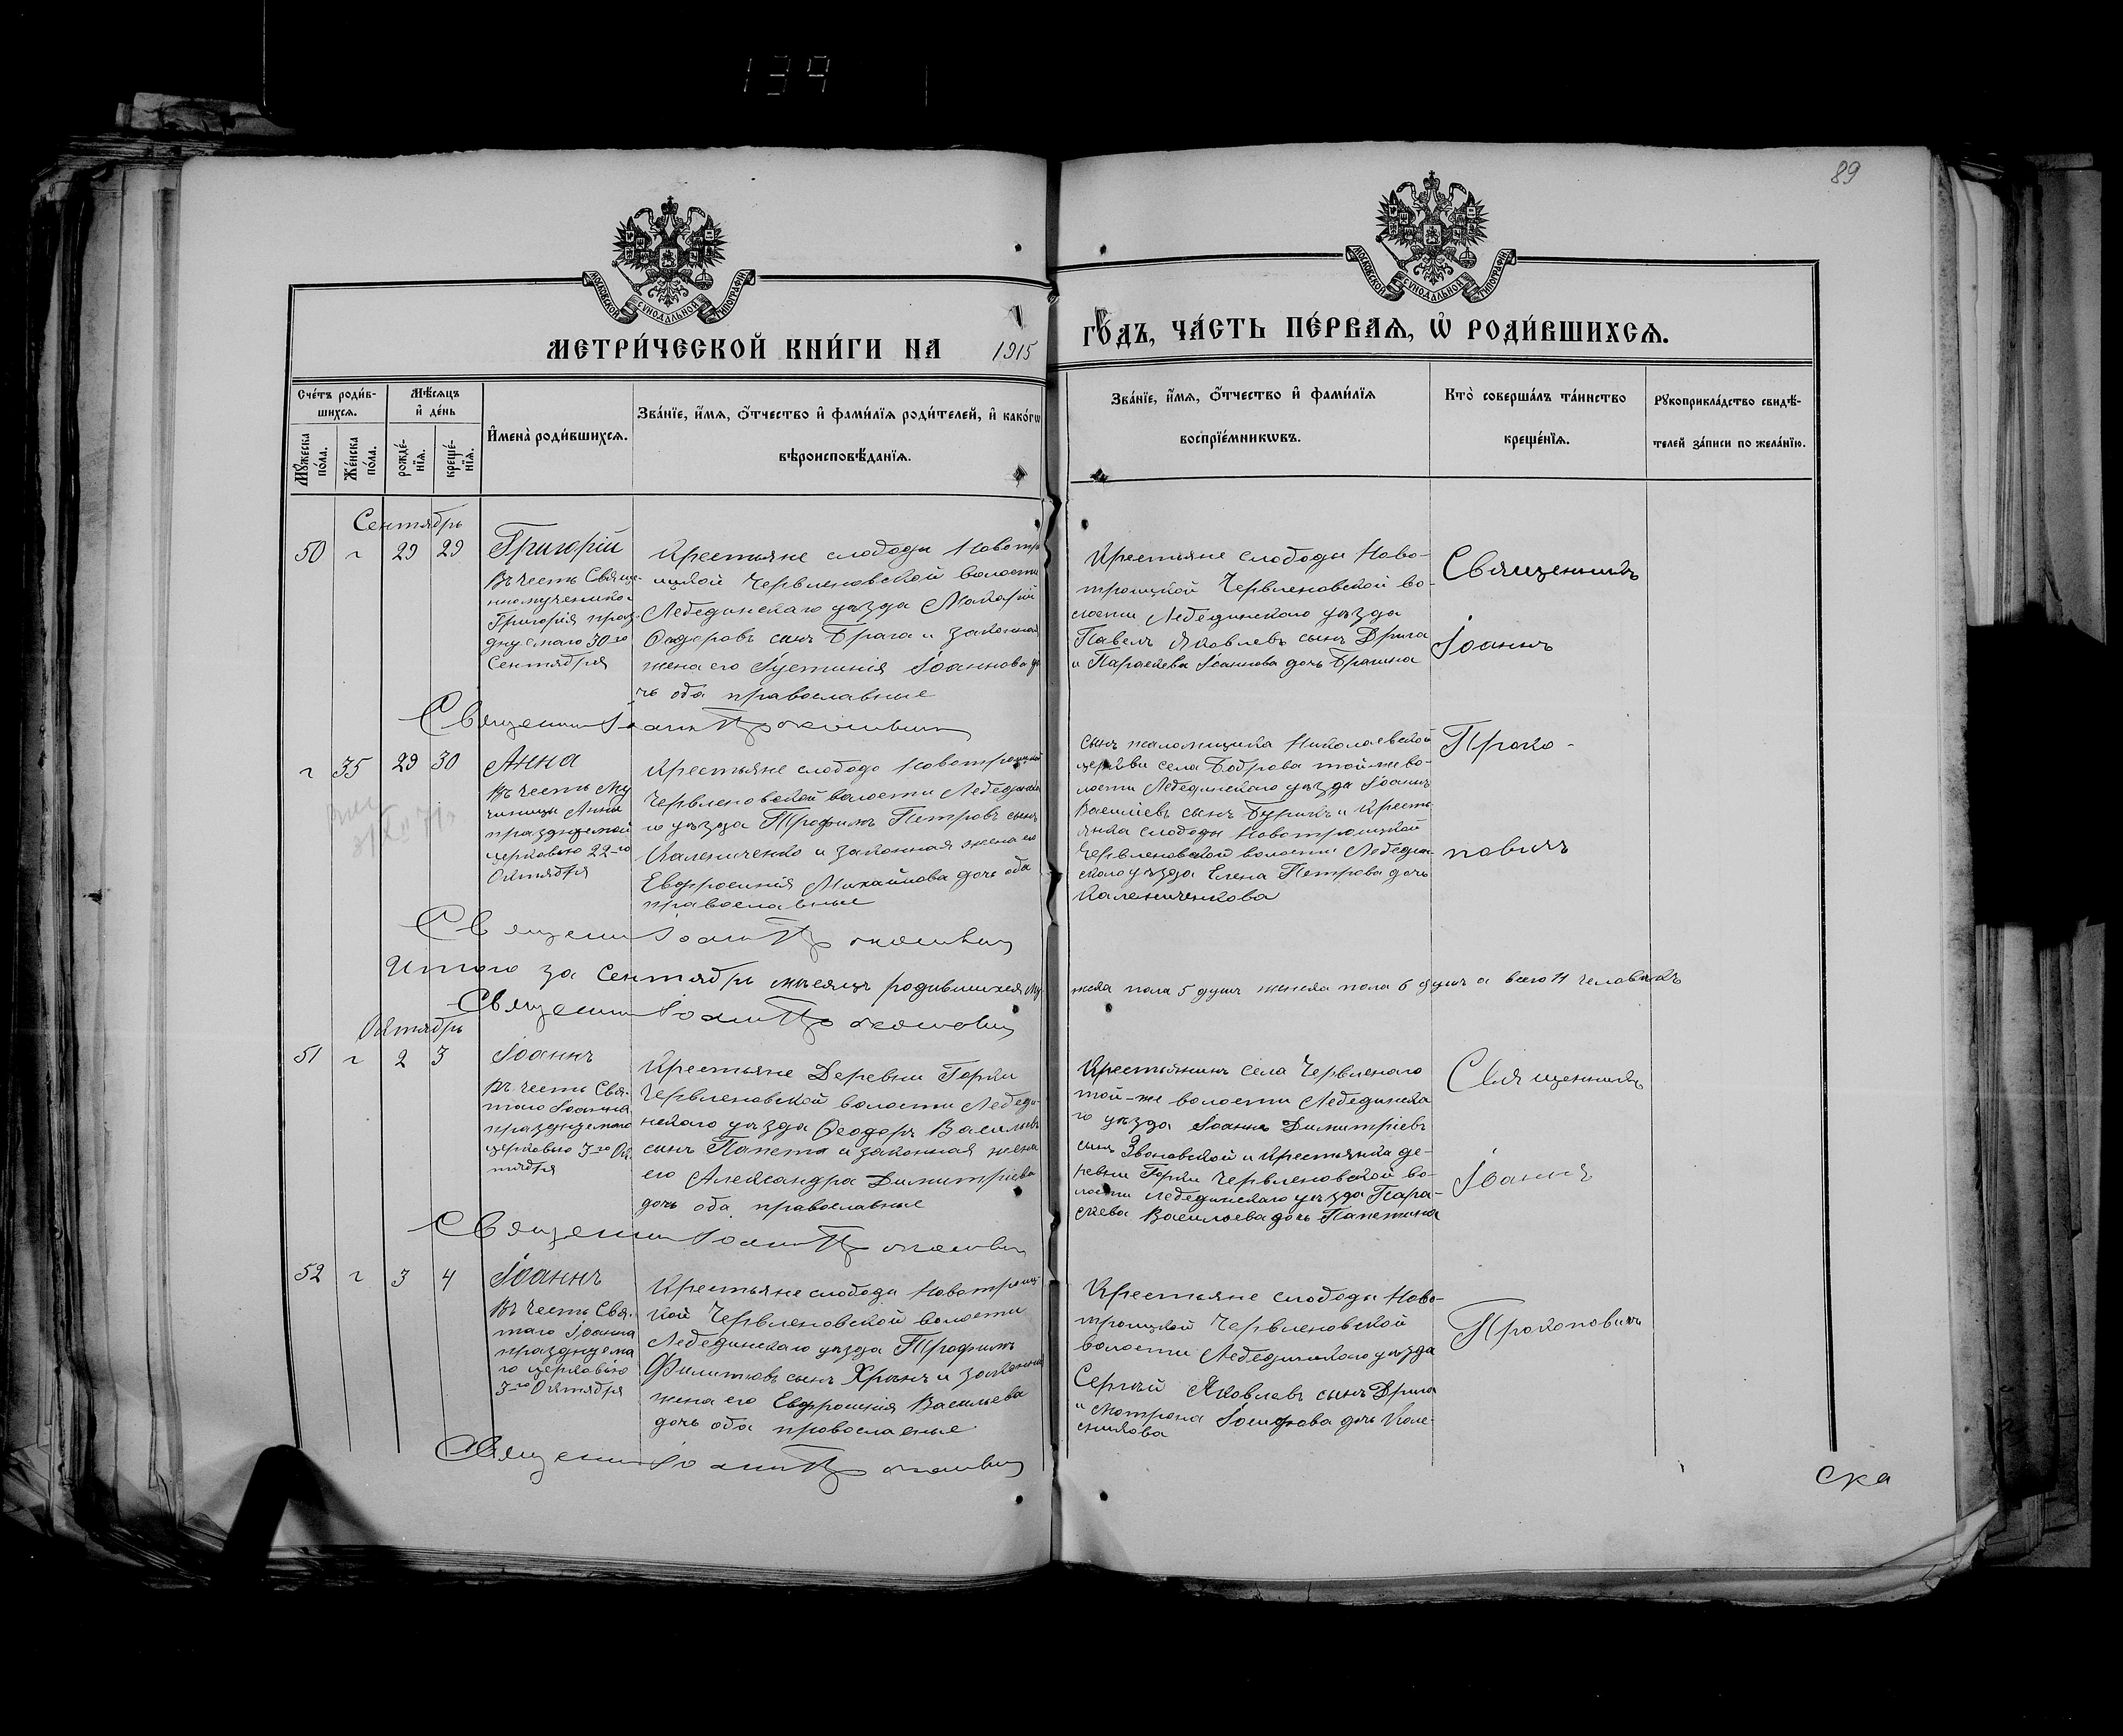 139
89
МОСКОВСКОЙ СУНОДАЛЬНОЙ ТИПОГРАФІИ
МОСКОВСКОЙ СУНОДАЛЬНОЙ ТИПОГРАФІИ
МЕТРИ́ЧЕСКОЙ КНИ́ГИ НА 1915
ГО́ДЪ, ЧА́СТЬ ПЕ́РВАѦ, Ѡ҆ РОДИ́ВШИХСѦ.
Сче́тъ роди́в-
шихсѧ.
Мѣ́сѧцъ
и҆ де́нь
Мꙋ́жеска
по́ла.
Же́нска
по́ла.
рожде́-
нїѧ.
креще́-
нїѧ.
И҆мена̀ роди́вшихсѧ.
Зва́нїе, и҆́мѧ, ѻ҆́тчество и҆ фами́лїѧ роди́телей, и҆ како́гѡ
вѣроисповѣ́данїѧ.
Зва́нїе, и҆́мѧ, ѻ҆́тчество и҆ фами́лїѧ
воспрїе́мникѡвъ.
Кто̀ соверша́лъ та́инство
креще́нїѧ.
Рꙋкоприкла́дство свидѣ́-
телей за́писи по жела́нїю.
Сентябрь
50 " 29 29
Григорій
Въ честь Свяще-
нномученика
Григорія праз-
днуемаго 30го
Сентября
Крестьяне слободы Новотро
ицкой Червленовской волости
Лебединскаго уѣзда Макарій
Ѳедоровъ сынъ Брага и законная
жена его Іустинія Іоаннова до
чь оба православные
Крестьяне слободы Ново-
троицкой Червленовской во-
лости Лебединскаго уѣзда
Павелъ Яковлевъ сынъ Дрига
и Параскева Іоаннова дочь Брагина
Священникъ
Іоаннъ
Священникъ Іоаннъ Прокоповичъ
" 35 29 30
Анна
Въ честь Му
ченицы Анны
празднуемой
церковью 22-го
Октября
Крестьяне слободы Новотроицкой
Червленовской волости Лебединска
го уѣзда Трофимъ Петровъ сынъ
Калениченко и законная жена его
Евфросинія Михайлова дочь оба
православные
Сынъ псаломщика Николаевской
церкви села Боброва той-же во-
лости Лебединскаго уѣзда Іоаннъ
Васильевъ сынъ и Кресть
янка слободы Новотроицкой
Червленовской волости Лебедин-
скаго уѣзда Елена Петрова дочь
Калениченкова
Проко-
повичъ
Священникъ Іоаннъ Прокоповичъ
Итого за Сентябрь мѣсяцъ родившихся му
жска пола 5 душъ женска пола 6 душъ а всего 11 человѣкъ
Священникъ Іоаннъ Прокоповичъ
Октябрь
51 " 2 3
Іоаннъ
Въ честь Свя-
таго Іоанна
празднуемаго
церковью 3-го Ок
тября
Крестьяне Деревни Горки
Червленовской волости Лебеди-
нскаго уѣзда Ѳеодоръ Васильевъ
сынъ Папета и законная жена
его Александра Димитріева
дочь оба православные
Крестьянинъ села Червленаго
той-же волости Лебединска
го уѣзда Іоаннъ Димитріевъ
сынъ Звоновской и Крестьянка де-
ревни Горки Червленовской во-
лости Лебединскаго уѣзда Пара-
скева Васильева дочь Папетина
Священникъ
Іоаннъ
Священникъ Іоаннъ Прокоповичъ
52 " 3 4
Іоаннъ
Въ честь Свя-
таго Іоанна
празднуема
го церковью
3-го Октября
Крестьяне слободы Новотроиц-
кой Червленовской волости
Лебединскаго уѣзда Трофимъ
Филиповъ сынъ Хрынъ и законная
жена его Евфросинія Васильева
дочь оба православные
Крестьяне слободы Ново-
троицкой Червленовской
волости Лебединскаго уѣзда
Сергѣй Яковлевъ сынъ Дрига
и Матрона Іосифова дочь Коле-
сникова
Прокоповичъ
Священникъ Іоаннъ Прокоповичъ
ска